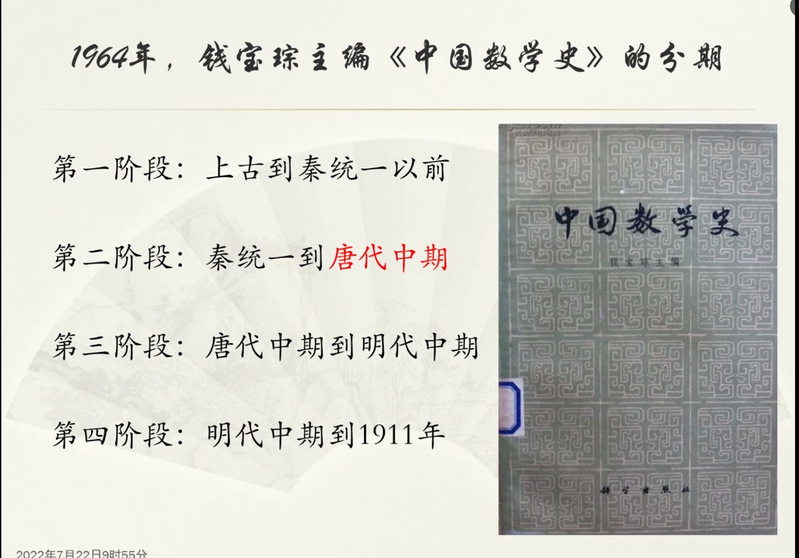 1964年，钱宝琮主编《中国数学史》的分期
第一阶段：上古到秦统一以前
第二阶段：秦统一到唐代中期
第三阶段：唐代中期到明代中期
第四阶段：明代中期到1911年
中国数学史
钱宝琮主编
科学出版社
2022年7月22日9时55分